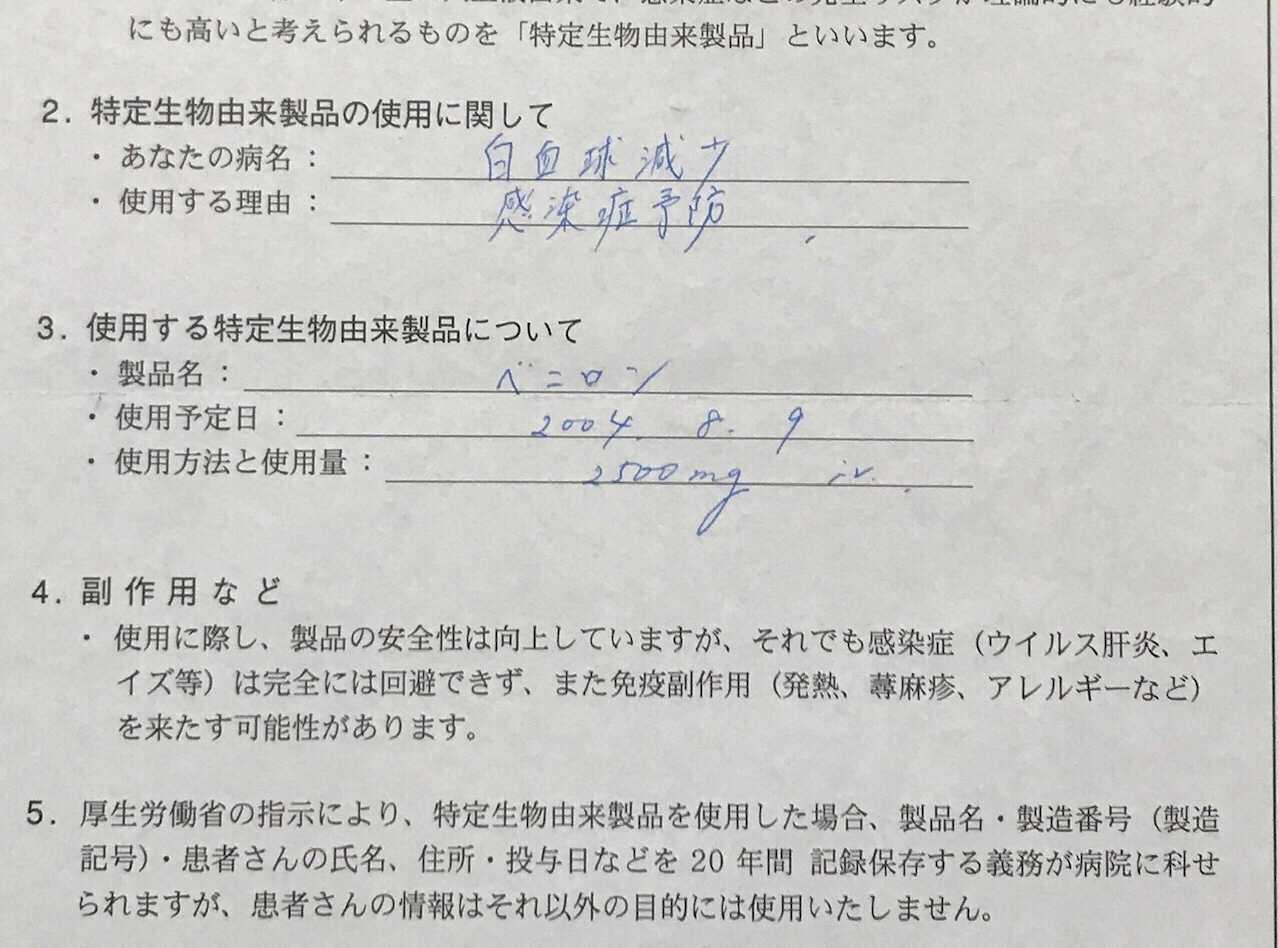 にも高いと考えられるものを「特定生物由来製品」といいます。
2. 特定生物由来製品の使用に関して
・あなたの病名: 白血球減少
・使用する理由: 感染症予防
3. 使用する特定生物由来製品について
・製品名: ベニロン
・使用予定日: 2004. 8. 9
・使用方法と使用量: 2500mg iv.
4. 副作用など
・使用に際し、製品の安全性は向上していますが、それでも感染症(ウイルス肝炎、エ
イズ等)は完全には回避できず、また免疫副作用(発熱、蕁麻疹、アレルギーなど)
を来たす可能性があります。
5. 厚生労働省の指示により、特定生物由来製品を使用した場合、製品名・製造番号(製造
記号)・患者さんの氏名、住所・投与日などを 20 年間 記録保存する義務が病院に科せ
られますが、患者さんの情報はそれ以外の目的には使用いたしません。